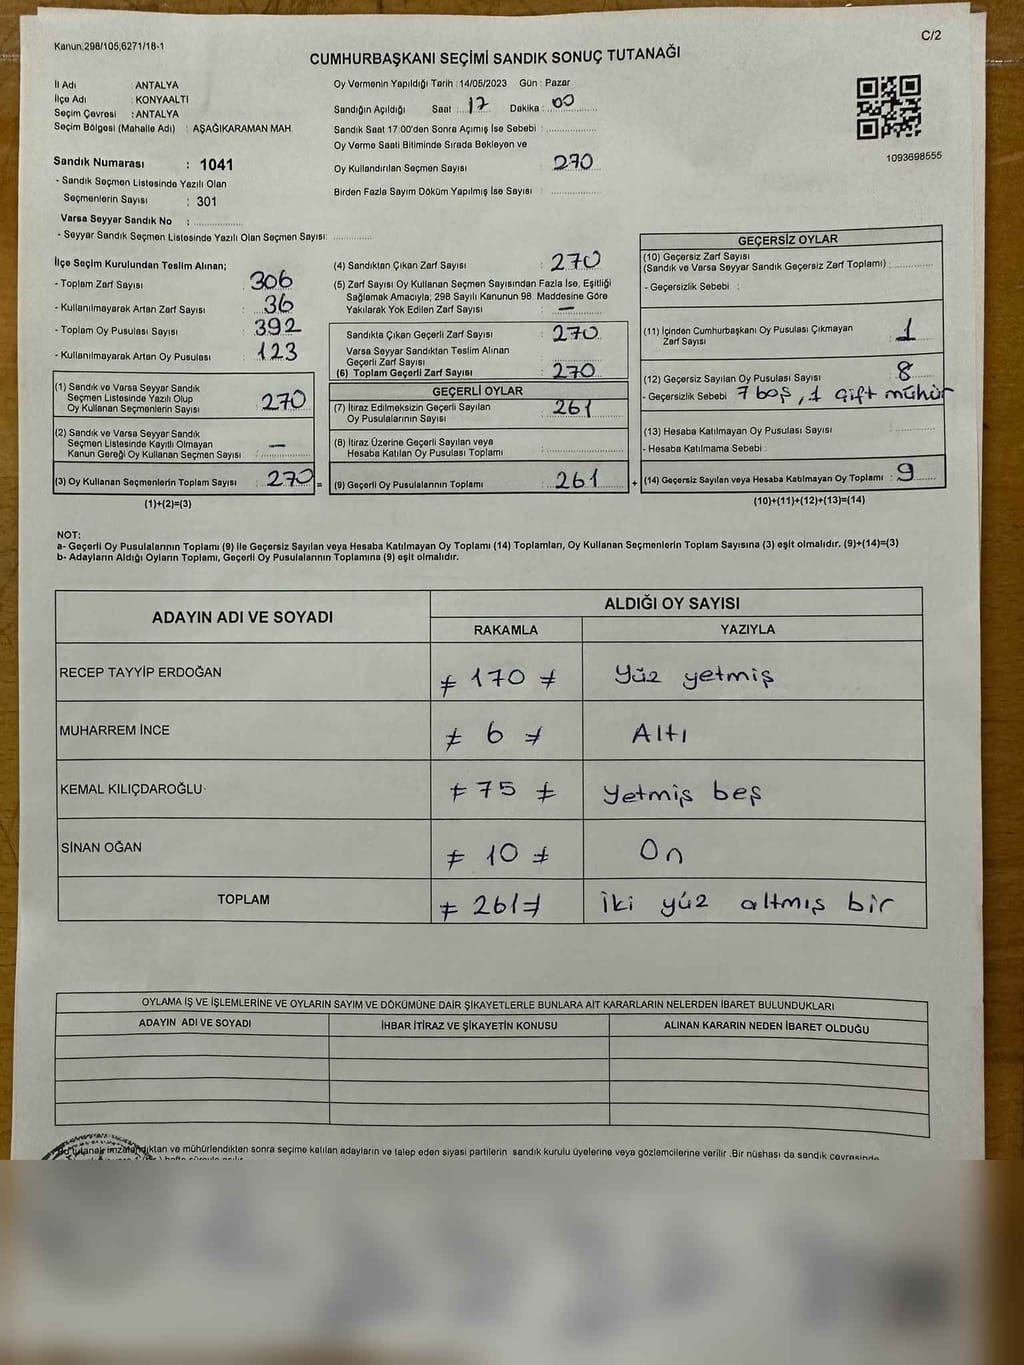 Kanun;298/105,6271/18-1
C/2
CUMHURBAŞKANI SEÇİMİ SANDIK SONUÇ TUTANAĞI
İl Adı : ANTALYA
İlçe Adı : KONYAALTI
Seçim Çevresi : ANTALYA
Seçim Bölgesi (Mahalle Adı) : AŞAĞIKARAMAN MAH.
Sandık Numarası : 1041
- Sandık Seçmen Listesinde Yazılı Olan
Seçmenlerin Sayısı : 301
Varsa Seyyar Sandık No :
- Seyyar Sandık Seçmen Listesinde Yazılı Olan Seçmen Sayısı:
Oy Vermenin Yapıldığı Tarih :14/05/2023 Gün : Pazar
Sandığın Açıldığı Saat : 17 Dakika : 00
Sandık Saat 17:00'den Sonra Açımış İse Sebebi :
Oy Verme Saati Bitiminde Sırada Bekleyen ve
Oy Kullandırılan Seçmen Sayısı 270
Birden Fazla Sayım Döküm Yapılmış İse Sayısı :
1093698555
İlçe Seçim Kurulundan Teslim Alınan;
- Toplam Zarf Sayısı : 306
- Kullanılmayarak Artan Zarf Sayısı : 36
- Toplam Oy Pusulası Sayısı : 392
- Kullanılmayarak Artan Oy Pusulası : 123
(1) Sandık ve Varsa Seyyar Sandık
Seçmen Listesinde Yazılı Olup
Oy Kullanan Seçmenlerin Sayısı : 270
(2) Sandık ve Varsa Seyyar Sandık
Seçmen Listesinde Kayıtlı Olmayan
Kanun Gereği Oy Kullanan Seçmen Sayısı : —
(3) Oy Kullanan Seçmenlerin Toplam Sayısı : 270 =
(1)+(2)=(3)
(4) Sandıktan Çıkan Zarf Sayısı : 270
(5) Zarf Sayısı Oy Kullanan Seçmen Sayısından Fazla İse, Eşitliği
Sağlamak Amacıyla; 298 Sayılı Kanunun 98. Maddesine Göre
Yakılarak Yok Edilen Zarf Sayısı : —
Sandıkta Çıkan Geçerli Zarf Sayısı : 270
Varsa Seyyar Sandıktan Teslim Alınan
Geçerli Zarf Sayısı
(6) Toplam Geçerli Zarf Sayısı : 270
GEÇERLİ OYLAR
(7) İtiraz Edilmeksizin Geçerli Sayılan
Oy Pusulalarının Sayısı : 261
(8) İtiraz Üzerine Geçerli Sayılan veya
Hesaba Katılan Oy Pusulası Toplamı :
(9) Geçerli Oy Pusulalarının Toplamı : 261 +
GEÇERSİZ OYLAR
(10) Geçersiz Zarf Sayısı
(Sandık ve Varsa Seyyar Sandık Geçersiz Zarf Toplamı) :
- Geçersizlik Sebebi :
(11) İçinden Cumhurbaşkanı Oy Pusulası Çıkmayan
Zarf Sayısı : 1
(12) Geçersiz Sayılan Oy Pusulası Sayısı : 8
- Geçersizlik Sebebi 7 boş, 1 çift mühür
(13) Hesaba Katılmayan Oy Pusulası Sayısı :
- Hesaba Katılmama Sebebi :
(14) Geçersiz Sayılan veya Hesaba Katılmayan Oy Toplamı : 9
(10)+(11)+(12)+(13)=(14)
NOT:
a- Geçerli Oy Pusulalarının Toplamı (9) ile Geçersiz Sayılan veya Hesaba Katılmayan Oy Toplamı (14) Toplamları, Oy Kullanan Seçmenlerin Toplam Sayısına (3) eşit olmalıdır. (9)+(14)=(3)
b- Adayların Aldığı Oyların Toplamı, Geçerli Oy Pusulalarının Toplamına (9) eşit olmalıdır.
ADAYIN ADI VE SOYADI ALDIĞI OY SAYISI
RAKAMLA YAZIYLA
RECEP TAYYİP ERDOĞAN ≠ 170 ≠ Yüz yetmiş
MUHARREM İNCE ≠ 6 ≠ Altı
KEMAL KILIÇDAROĞLU ≠ 75 ≠ Yetmiş beş
SİNAN OĞAN ≠ 10 ≠ On
TOPLAM ≠ 261 ≠ İki yüz altmış bir
OYLAMA İŞ VE İŞLEMLERİNE VE OYLARIN SAYIM VE DÖKÜMÜNE DAİR ŞİKAYETLERLE BUNLARA AİT KARARLARIN NELERDEN İBARET BULUNDUKLARI
ADAYIN ADI VE SOYADI İHBAR İTİRAZ VE ŞİKAYETİN KONUSU ALINAN KARARIN NEDEN İBARET OLDUĞU
Bu tutanak imzalandıktan ve mühürlendikten sonra seçime katılan adayların ve talep eden siyasi partilerin sandık kurulu üyelerine veya gözlemcilerine verilir .Bir nüshası da sandık çevresinde